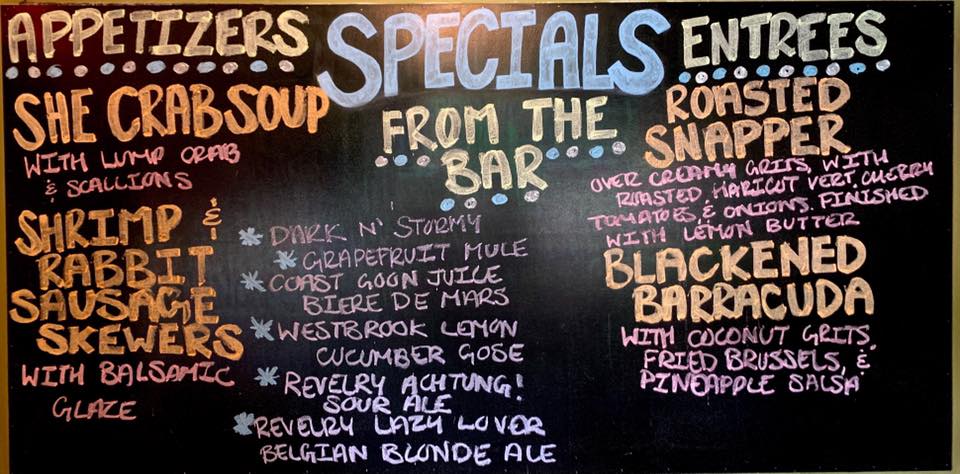 SPECIALS
APPETIZERS
SHE CRAB SOUP
WITH LUMP CRAB
& SCALLIONS
SHRIMP &
RABBIT
SAUSAGE
SKEWERS
WITH BALSAMIC
GLAZE
FROM THE
BAR
* DARK N' STORMY
* GRAPEFRUIT MULE
* COAST GOON JUICE
BIERE DE MARS
* WESTBROOK LEMON
CUCUMBER GOSE
* REVELRY ACHTUNG!
SOUR ALE
* REVELRY LAZY LOVER
BELGIAN BLONDE ALE
ENTREES
ROASTED
SNAPPER
OVER CREAMY GRITS, WITH
ROASTED, HARICOT VERT, CHERRY
TOMATOES, & ONIONS. FINISHED
WITH LEMON BUTTER
BLACKENED
BARRACUDA
WITH COCONUT GRITS,
FRIED BRUSSELS, &
PINEAPPLE SALSA